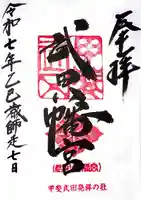 奉拝
武田八幡宮
甲斐武田発祥の社
令和七年乙巳歳師走七日